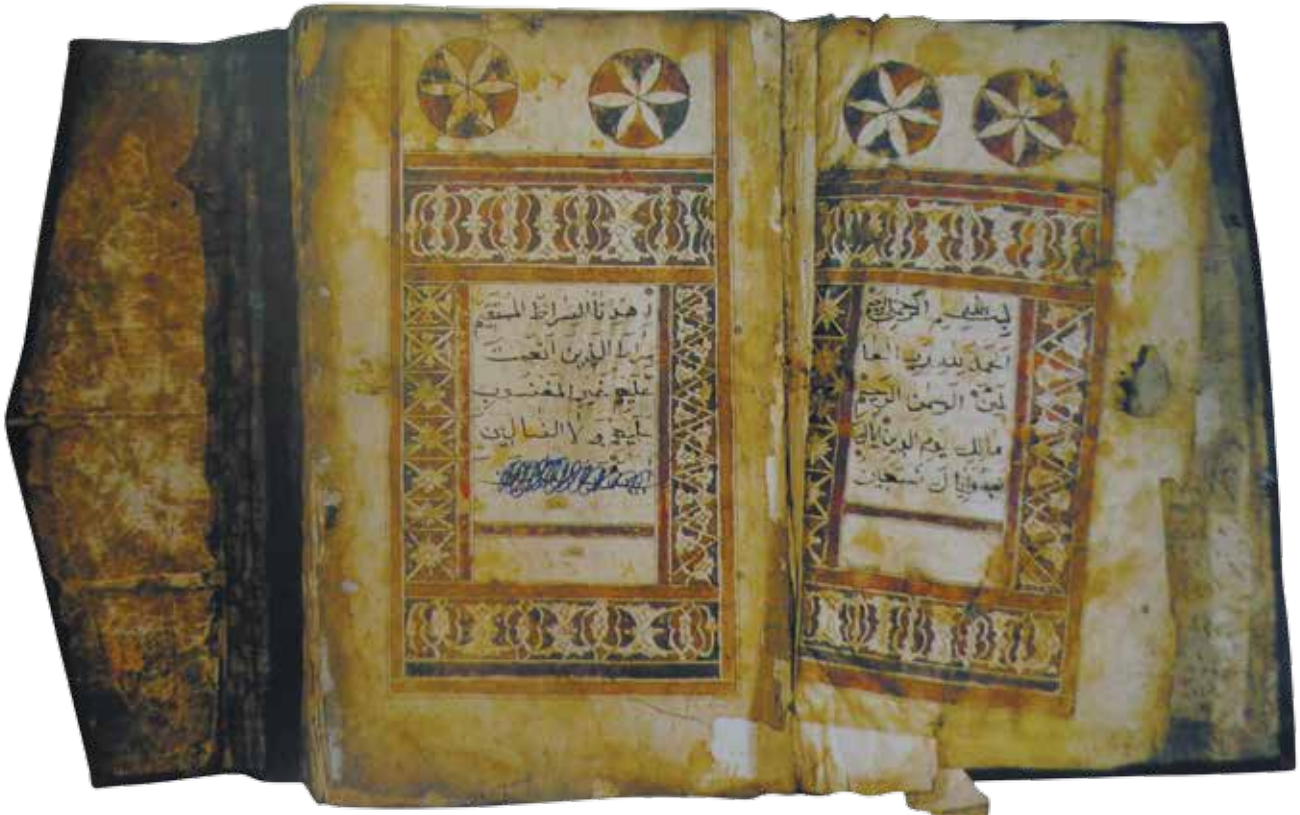 بسم الله الرحمن الرحيم
الحمد لله رب العا
لمين الرحمن الرحيم
مالك يوم الدين اياك
نعبد واياك نستعين
اهدنا الصراط المستقيم
صراط الذين انعمت
عليهم غير المغضوب
عليهم ولا الضالين